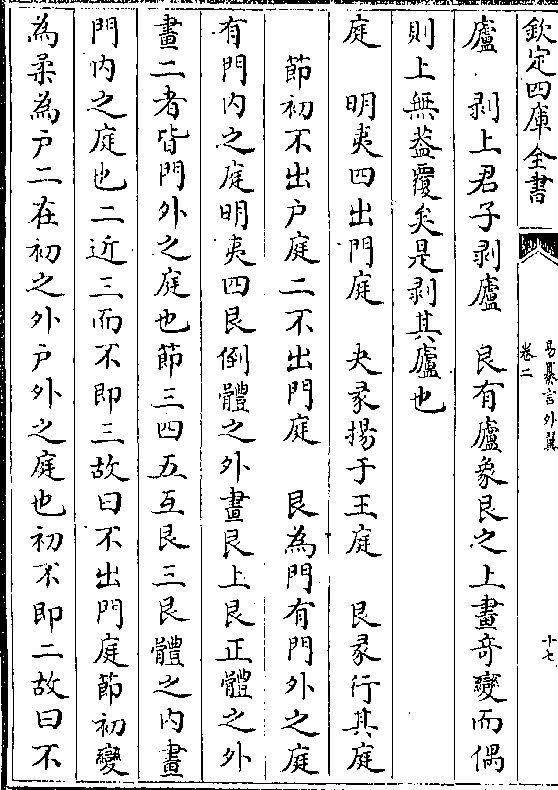 欽定四庫全書
易纂言外翼
卷二
十七
廬　剥上君子剥廬　艮有廬象艮之上畫奇變而偶
則上無蓋覆矣是剥其廬也
庭　明夷四出門庭　夬彖揚于王庭　艮彖行其庭
節初不出户庭二不出門庭　艮為門有門外之庭
有門内之庭明夷四艮倒體之外畫艮上艮正體之外
畫二者皆門外之庭也節三四五互艮三艮體之内畫
門内之庭也二近三而不即三故曰不出門庭節初變
為柔為户二在初之外户外之庭也初不即二故曰不